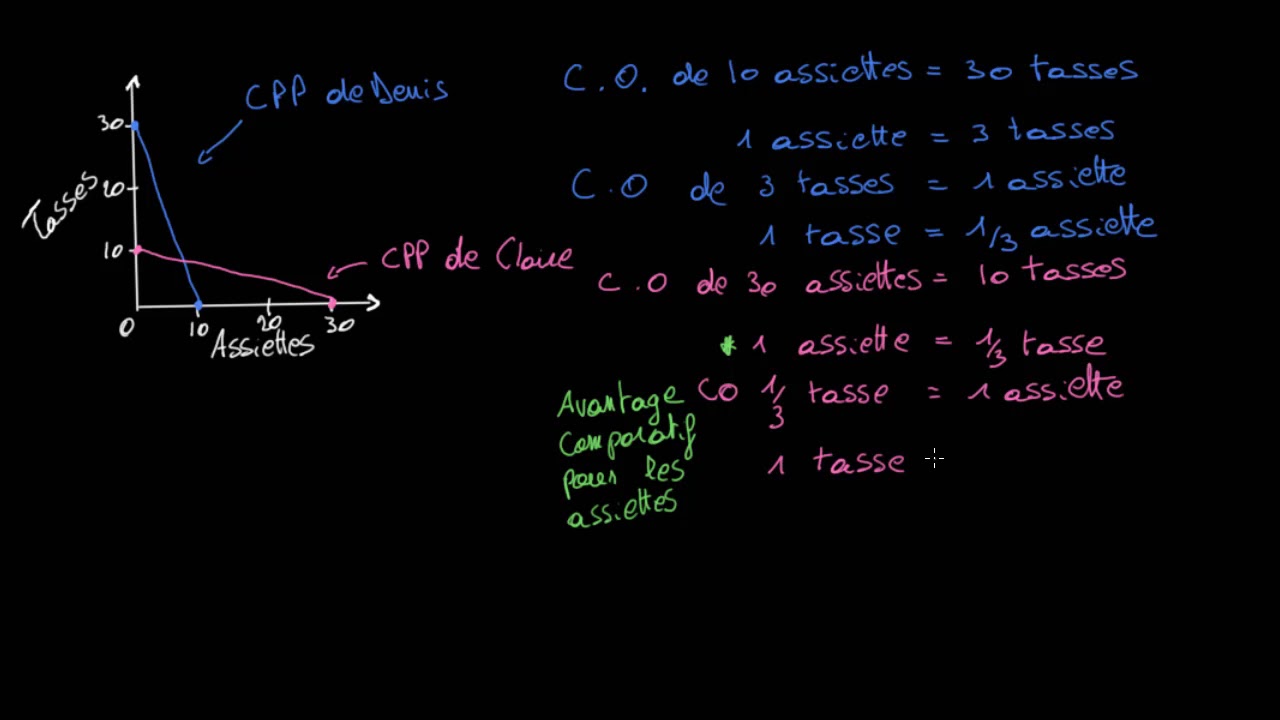 CPP de Denis
30
Tasses
20
10
CPP de Claire
0
10
20
30
Assiettes
C.O. de 10 assiettes = 30 tasses
1 assiette = 3 tasses
C.O de 3 tasses = 1 assiette
1 tasse = 1/3 assiette
C.O de 30 assiettes = 10 tasses
* 1 assiette = 1/3 tasse
CO 1/3 tasse = 1 assiette
1 tasse
Avantage
comparatif
pour les
assiettes